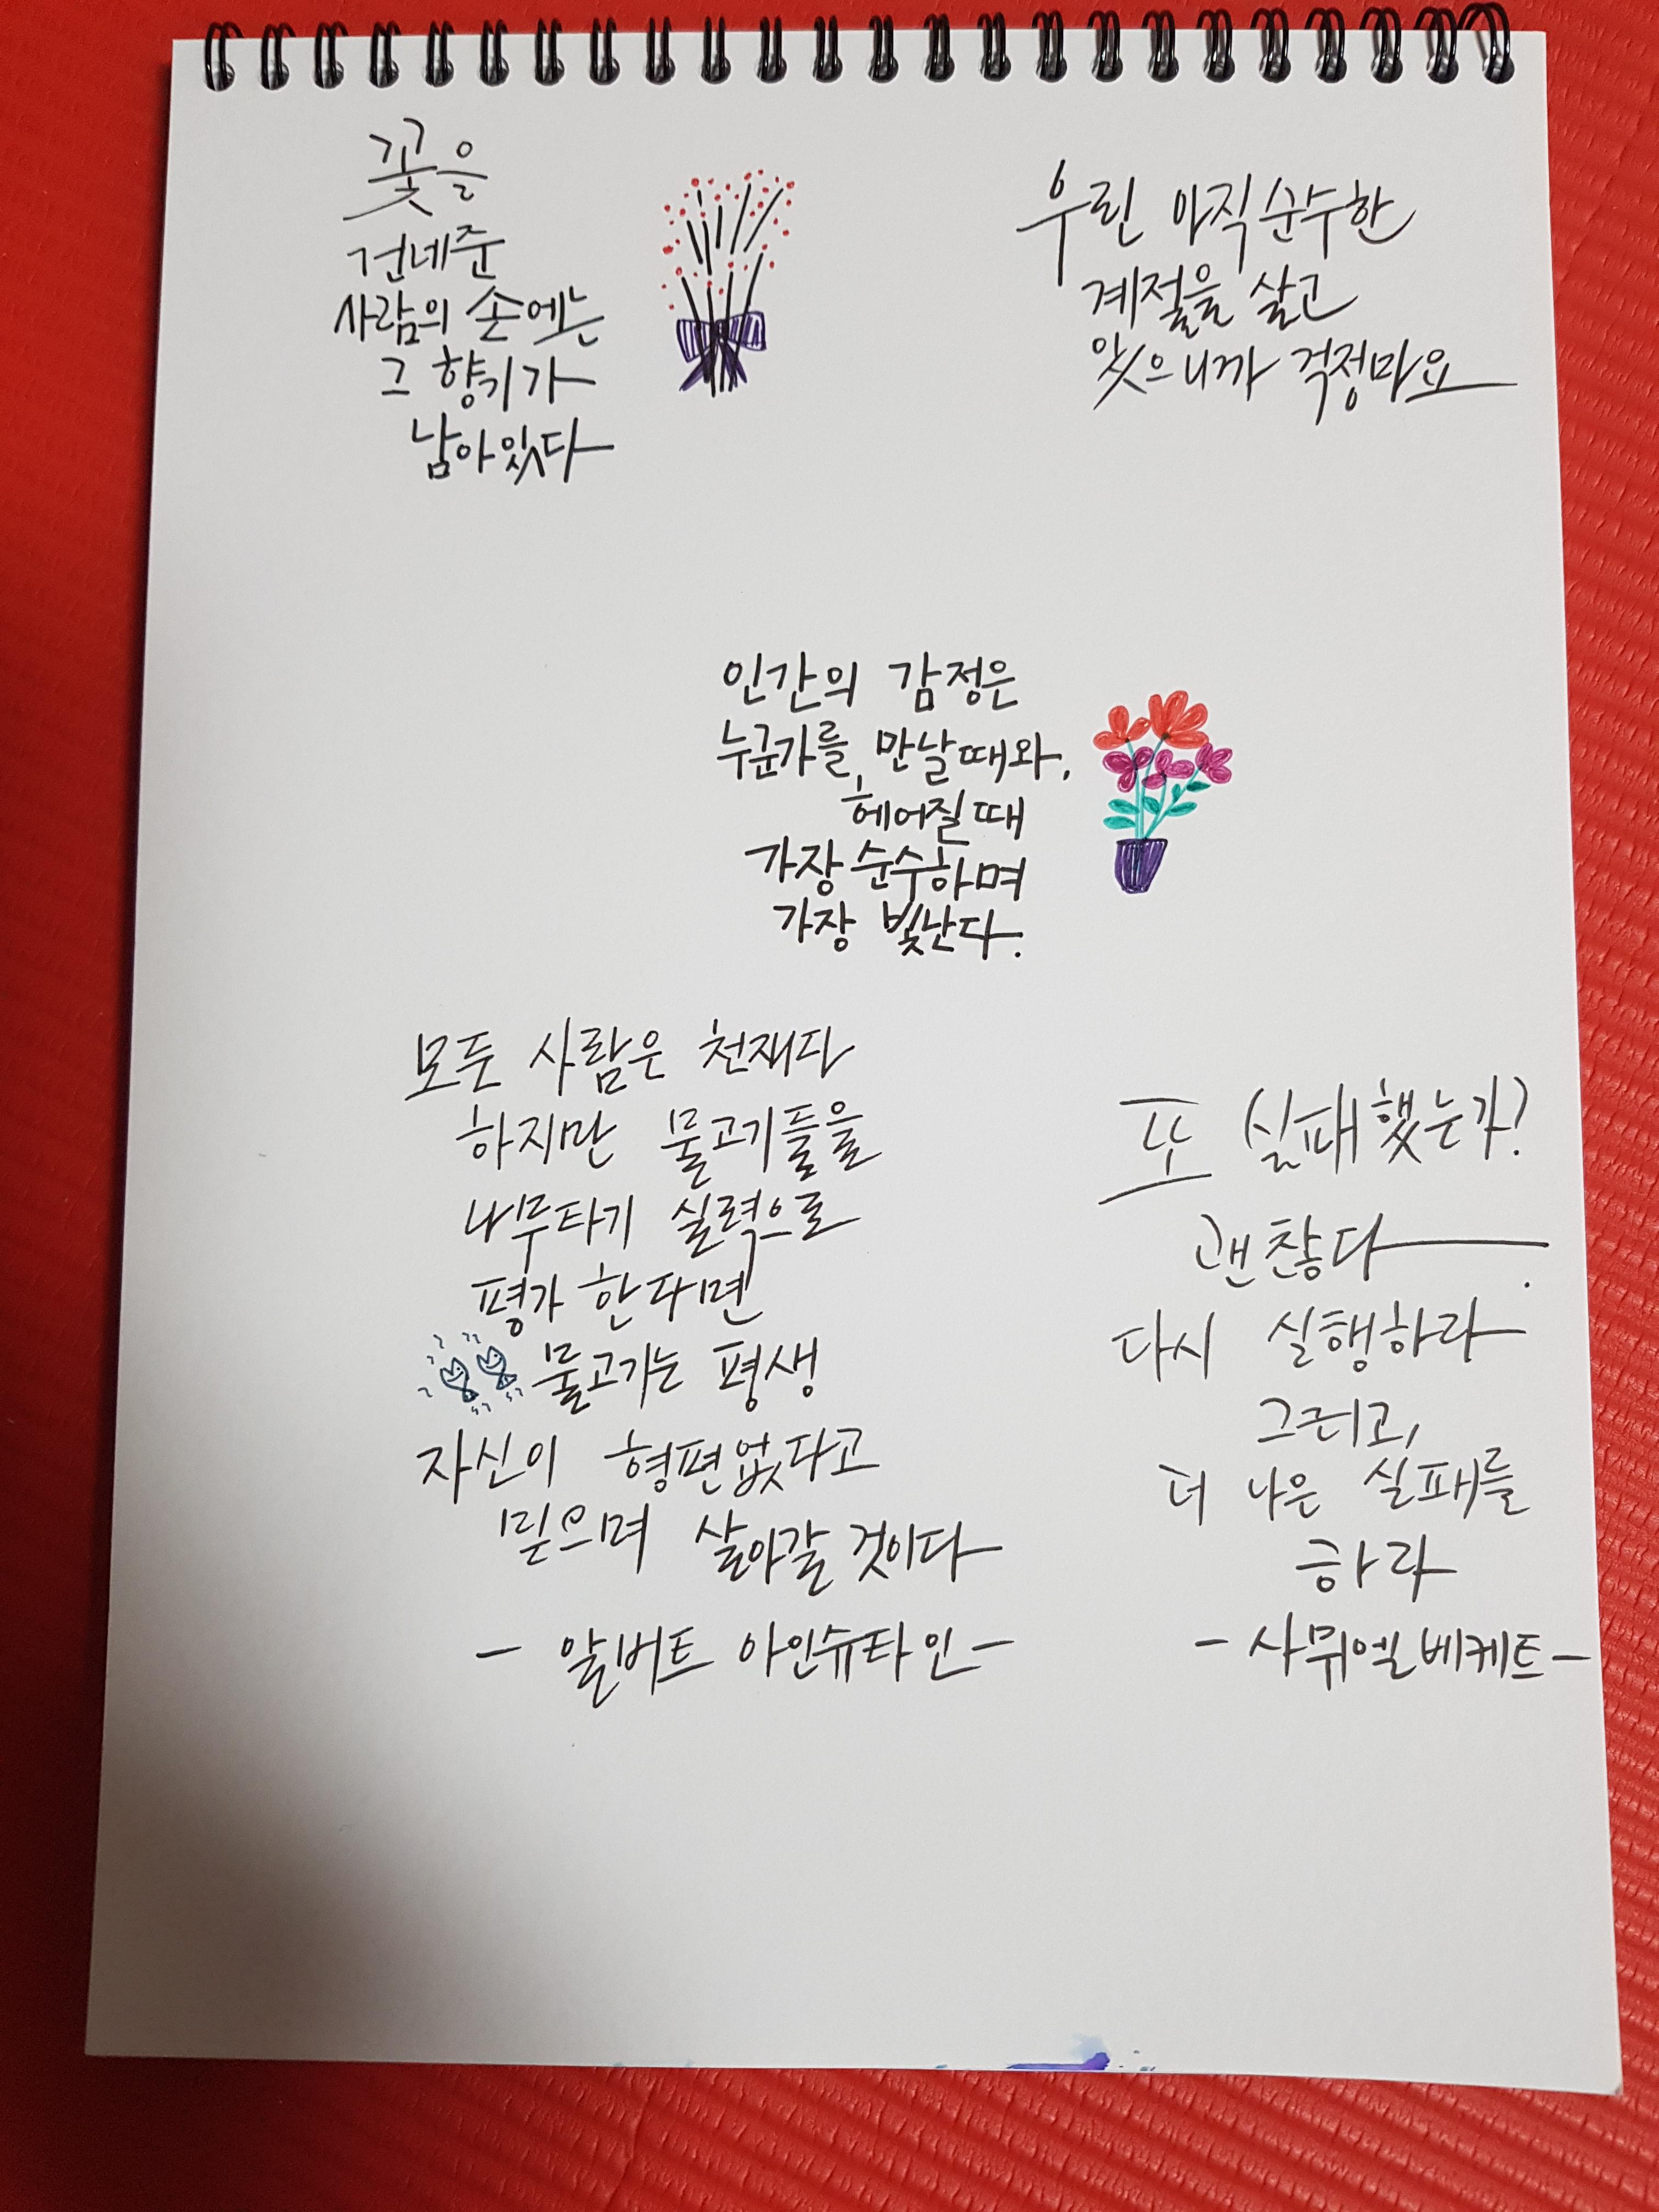 꽃을
건네준
사람의 손에는
그 향기가
남아있다
우린 아직 순수한
계절을 살고
있으니까 걱정마요
인간의 감정은
누군가를 만날때와,
헤어질때
가장 순수하며
가장 빛난다.
모두 사람은 천재다
하지만 물고기들을
나무타기 실력으로
평가 한다면
물고기는 평생
자신이 형편없다고
믿으며 살아갈 것이다
- 알버트 아인슈타인 -
또 실패했는가?
괜찮다.
다시 실행하라
그리고,
더 나은 실패를
하라
- 사뮈엘 베케트 -